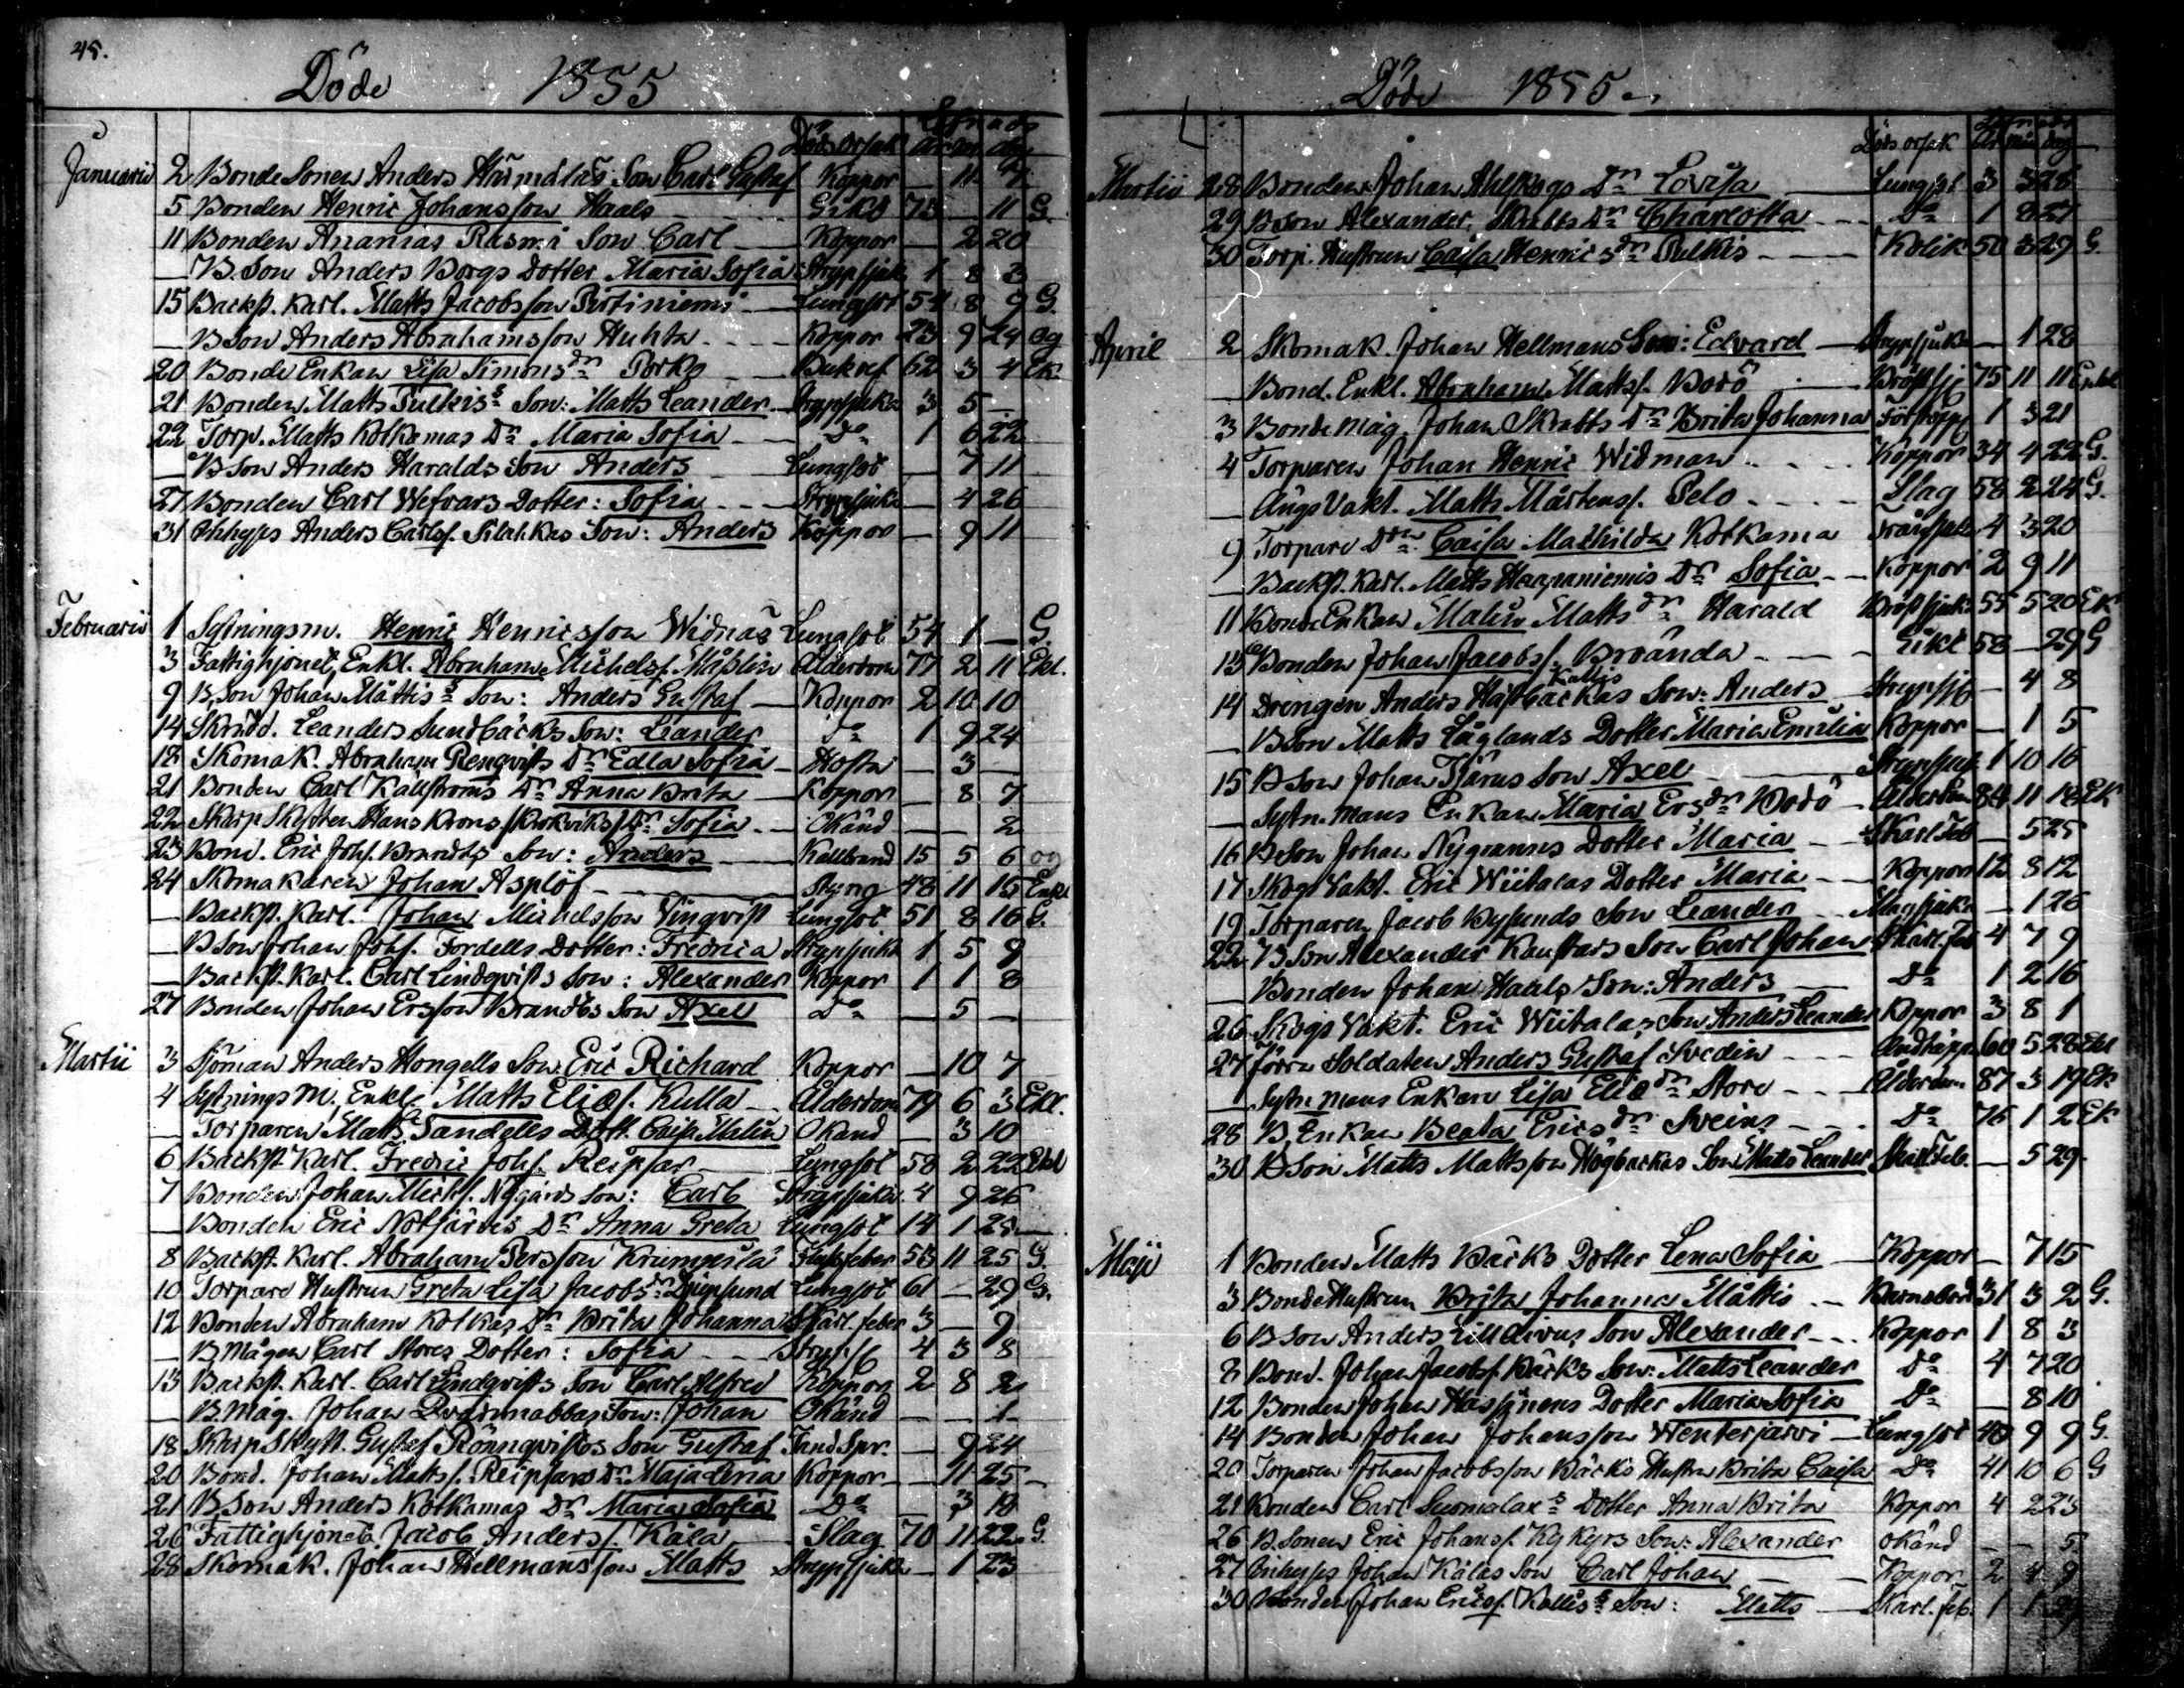 45.
Döde 1855
Döds orsak år mån dag
Januarii 2 Bonde Sonen Anders Son Carl Gustaf Koppor — 11 7
5 Bonden Henric Johansson Haals Gikt 73 — 11 G.
11 Bonden Ananias Rasmi Son Carl Koppor — 2 20
— B. Son Anders Borgs Dotter Maria Sofia Strypsjuk 1 8 3
15 Backst. Karl. Matts Jacobsson Pirtiniemi Lungsot 54 8 9 G.
— BSon Anders Abrahamsson Huhta Koppor 23 9 24 og
20 Bonde Enkan Lisa Simonsdr Porko 62 3 4 Ek.
21 Bonden Matts Pulkis Son: Matts Leander Strypsjuka 3 5 —
22 Torp. Matts Kotkamas Dr Maria Sofia Do 1 6 22
— BSon Anders Haralds Son Anders Lungsot — 7 11
27 Bonden Carl Wefvars Dotter: Sofia Strypsjuka — 4 26
31 Inhyses Anders Carlss. Son: Anders Koppor — 9 11
Februarii 1 Sytningsm. Henric Henricsson Widnäs Lungsot 54 1 — G.
3 Fattighjonet, Enkl. Abraham Michelss. Ålderdom 77 2 11 Ekl.
9 B,Son Johan Måttis Son: Anders Gustaf Koppor 2 10 10
14 Skrädd. Leanders Sundbäcks Son: Leander Do 1 9 24
18 Skomak. Abraham Renqvists Dr Edla Sofia Hosta — 3 —
21 Bonden Carl Källströms Dr Anna Brita Koppor — 8 7
22 Skarp Skytten Hans Krons /Krokviks/ Dr Sofia Okänd — — 2
23 Bond. Eric Johs. Son: Anders Kallbrand 15 5 6 og
24 Skomakaren Johan Asplöf 48 11 15 Enkl
— Backst. Karl. Johan Michelsson Vinqvist Lungsot 51 8 16 G.
— BSon Johan Johs. Fordells Dotter: Fredrica Strypsjuka 1 5 9
— Backst. Karl. Carl Lindqvists Son: Alexander Koppor 1 1 8
27 Bonden Johan Ersson Brandts Son Axel Do — 5 —
Martii 3 Sjöman Anders Hongells Son Eric Richard Koppor — 10 7
4 Sytnings M., Enkl. Matts Elias. Kulla Ålderdom 79 6 3 Ekl.
— Torparen Matts Sandells Dott. Caisa Malin Okänd — 3 10
6 Backst Karl. Fredric Johs. Reipsar Lungsot 58 2 22 Ekl
7 Bonden Johan Mich. Nygårds Son: Carl Strypsjuka 4 9 26
— Bonden Eric Notjärvis Dr Anna Greta Lungsot 14 1 28
8 Backst. Karl. Abraham Persson Krumpsila Flussfeber 58 11 25 G.
10 Torpare Hustrun Greta Lisa Jacobsdr Djupsund Lungsot 61 — 29 G.
12 Bonden Abraham Kotkas Dr Brita Johanna Skarl. feber 3 — 9
— B Mågen Carl Stores Dotter: Sofia Strypsj 4 3 8
13 Backst. Karl. Carl Lindqvists Son Carl Alfred Koppor 2 8 2
— B. Mag. Johan Son: Johan Okänd — — 1
18 Skarp Skytt. Gustaf Rönnqvistos Son Gustaf Tand Spr. — 9 24
20 Bond. Johan Matts. Reipsars Dr Maja Lena Koppor — 11 25
21 BSon Anders Kotkamas Dr Maria Sofia Do — 3 18
26 Fattighjonet Jacob Anders. Kala Slag 70 11 22 G.
28 Skomak. Johan Hellmans son Matts Strypsjuka — 1 23
Döde 1855
Döds orsak år mån dag
Martii 28 Bonden Johan Ahlskogs Dr Lovisa Lungsot 3 3 28
29 BSon Alexander Skrabbs Dr Charlotta Do 1 8 27
30 Torp. Hustrun Caisa Henricsdr Pulkis Kolik 50 3 29 G
April 2 Skomak. Johan Hellmans Son: Edvard Strypsjuka — 1 28
— Bond. Enkl. Abraham Mattss. Bodö Bröstsj 75 11 11 Enkl
3 Bonde Måg. Johan Skrabbs Dr Brita Johanna 1 3 21
4 Torparen Johan Henric Widman Koppor 34 4 22 G.
— Ängs Vakt. Matts Mårtenss. Pelo Slag 58 2 24 G.
9 Torpare Drn Caisa Mathilda Kotkama 4 3 20
— Backst. Karl. Matts Haapaniemis Dr Sofia Koppor 2 9 11
11 Bonde Enkan Malin Mattsdr Harald Bröstsjuka 55 5 20 Ek
13 Bonden Johan Jacobss. Broända Gikt 58 — 29 G
14 Drengen Anders Högbackas Kallis Son: Anders Strypsj — 4 8
— BSon Matts Låglands Dotter Maria Emilia Koppor — 1 5
15 BSon Johan Tjärus Son Axel Strypsjuk 1 10 16
— Sytn. Mans Enkan Maria Ersdr Bodö Ålderdom 84 11 18 Ek
16 BSon Johan Nygranns Dotter Maria Skarl. Feb — 5 25
17 Skogs Vakt. Eric Wiitalas Dotter Maria Koppor 12 8 12
19 Torparen Jacob Bysunds Son Leander — 1 26
22 B Son Alexander Kaustars Son Carl Johan Skarl. Feb 4 7 9
— Bonden Johan Haals Son: Anders Do 1 2 16
26 Skogs Vakt. Eric Wiitalas Son Anders Leander Koppor 3 8 1
27 förra Soldaten Anders Gustaf Svedin Andtäppa 60 5 28 Ekl
— Sytn. Mans Enkan Lisa Eliæ dr Store Ålderdom 87 3 19 Ek
28 B. Enkan Beata Ericsdr Sveins Do 76 1 2 Ek
30 BSon Matts Mattsson Högbackas Son Matts Leander Skarl Feb. — 5 29
Maji 1 Bonden Matts Bäcks Dotter Lena Sofia Koppor — 7 15
3 Bonde Hustrun Brita Johanna Måttis Barnsbörd 31 3 2 G.
6 BSon Anders Son Alexander Koppor 1 8 3
8 Bond. Johan Jacobss. Bäcks Son: Matts Leander Do 4 7 20
12 Bonden Johan Dotter Maria Sofia Do — 8 10
14 Bonden Johan Johansson Wenterjärvi Lungsot 40 9 9 G
20 Torparen Johan Jacobsson Bäcks Hustru Brita Caisa Do 41 10 6 G
21 Bonden Carl Suomalax Dotter Anna Brita Koppor 4 2 23
26 B. Sonen Eric Johanss. Kykyrs Son: Alexander okänd — — 5
27 Inhyses Johan Kälas Son Carl Johan Koppor 2 4 9
30 Bonden Johan Ericss. Kallis Son: Matts Skarl. feb. 1 1 29